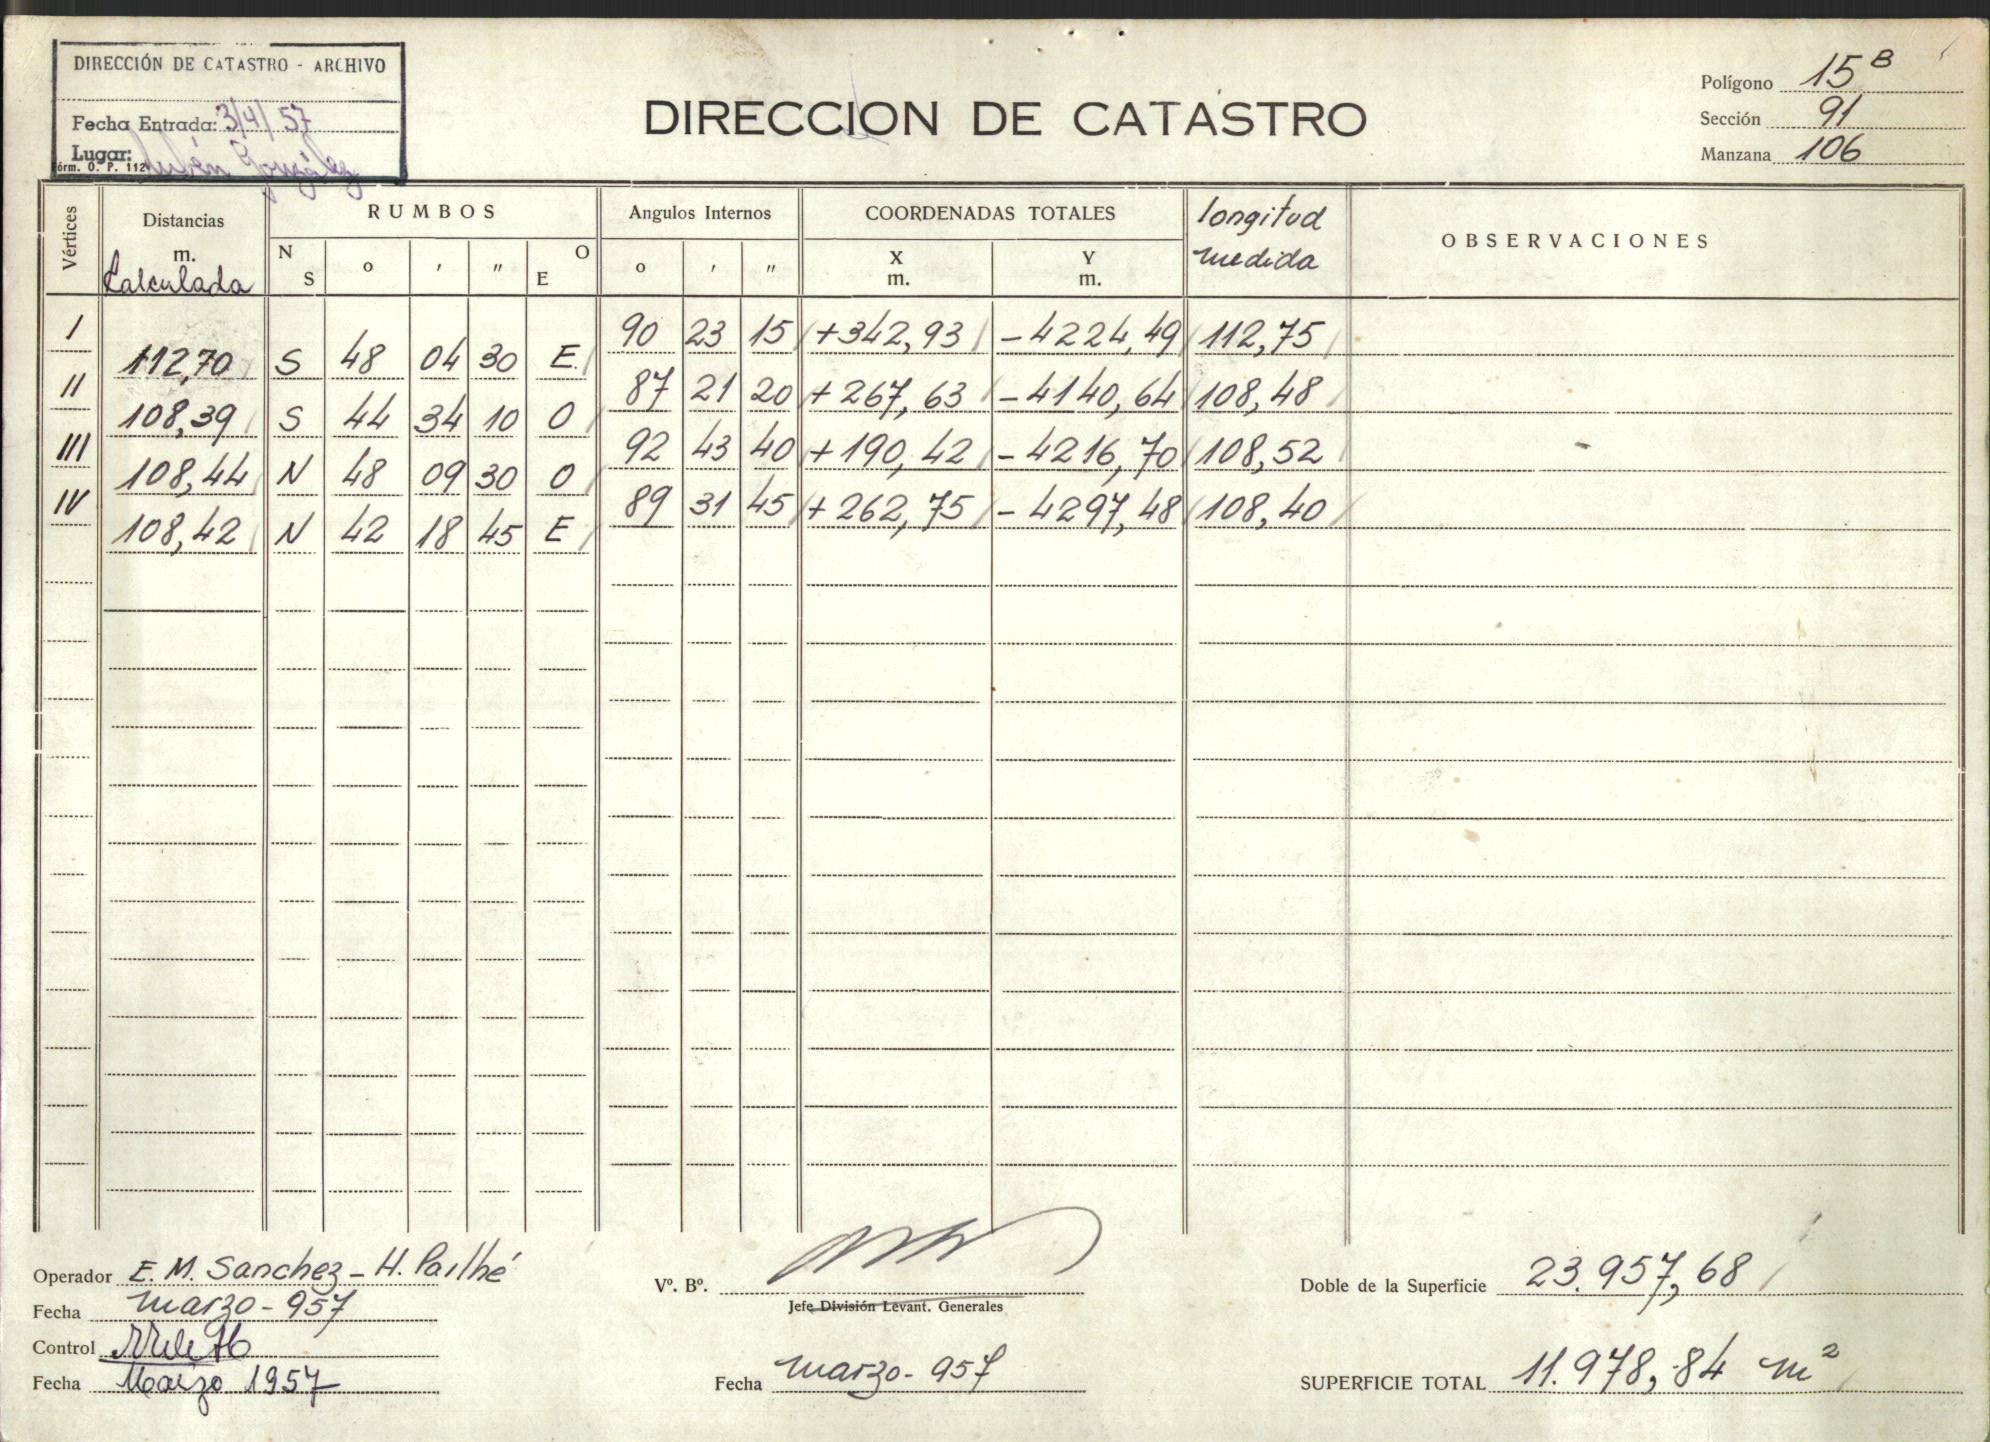 DIRECCIÓN DE CATASTRO - ARCHIVO
Fecha Entrada: 3/4/57
Lugar:
Rubén González
Fórm. O. P. 112
DIRECCION DE CATASTRO
Polígono 15 B
Sección 91
Manzana 106
Vértices Distancias m. Calculada RUMBOS N S o ' " O E Angulos Internos o ' " COORDENADAS TOTALES X m. Y m. longitud medida OBSERVACIONES
I 90 23 15 +342,93 -4224,49 112,75
112,70 S 48 04 30 E
II 87 21 20 +267,63 -4140,64 108,48
108,39 S 44 34 10 O
III 92 43 40 +190,42 -4216,70 108,52
108,44 N 48 09 30 O
IV 89 31 45 +262,75 -4297,48 108,40
108,42 N 42 18 45 E
Operador E. M. Sanchez - H. Pailhé
Fecha marzo - 957
Control
Fecha Marzo 1957
Vº. Bº.
Jefe División Levant. Generales
Fecha marzo - 957
Doble de la Superficie 23.957,68
SUPERFICIE TOTAL 11.978,84 m²